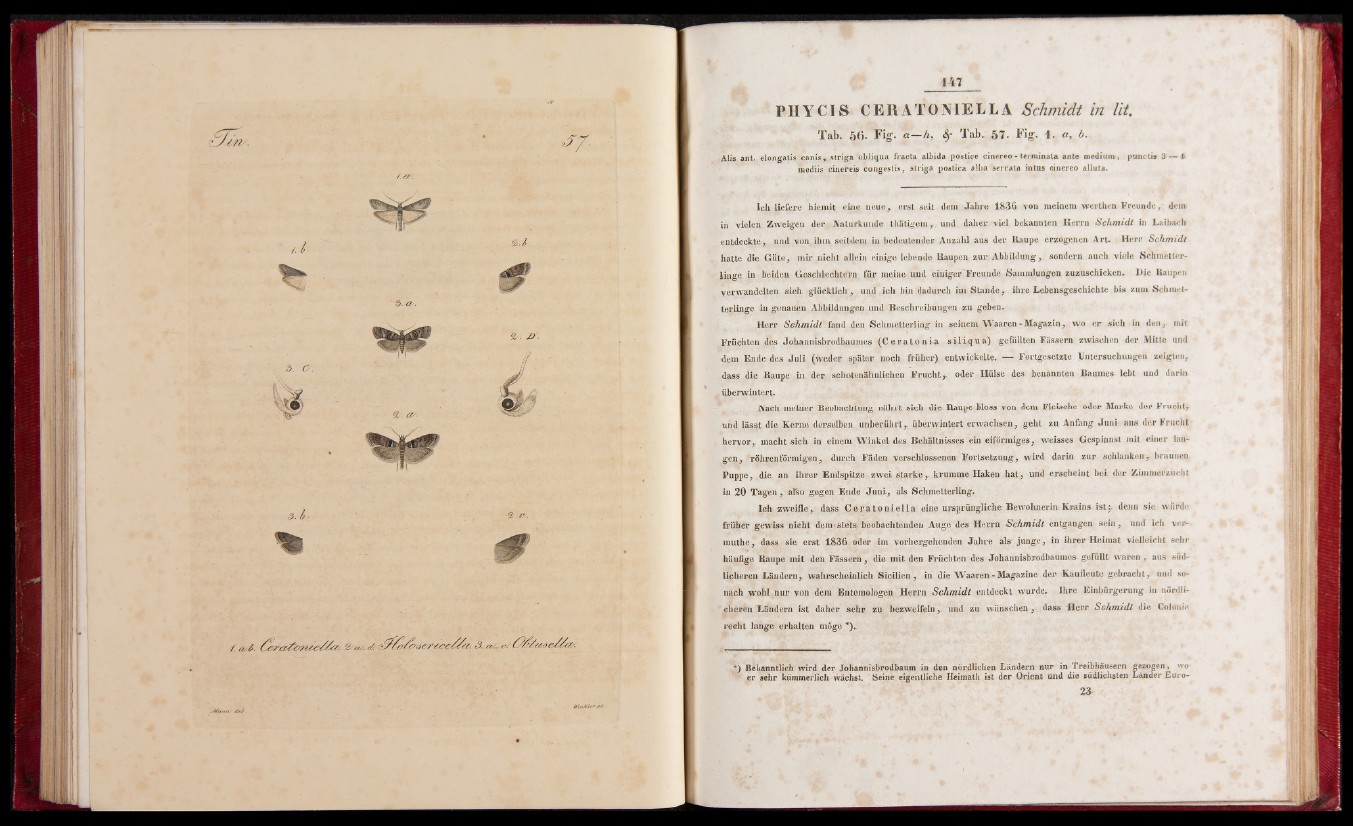 Tin.
57.
1. a.
1. b
2. b
3. a.
2. D.
3. C.
2. a.
3. b.
2. c.
1. a.b. Ceratoniella. 2. a._d. Holosericella. 3. a._c. Obtusella.
Mann del.
Winkler sc.
147
PHYCIS CERATONIELLA Schmidt in lit.
Tab. 56. Fig. a—h. & Tab. 57. Fig. 1. a, b.
Alis ant. elongatis canis, striga obliqua fracta albida postice cinereo-terminata ante medium, punctis 3—
mediis cinereis congestis, striga postica alba serrata intus cinereo alluta.
Ich liefere hiemit eine neue, erst seit dem Jahre 1836 von meinem werthen Freunde, dem
in vielen Zweigen der Naturkunde thätigem, und daher viel bekannten Herrn Schmidt in Laibach
entdeckte, und von ihm seitdem in bedeutender Anzahl aus der Raupe erzogenen Art. Herr Schmidt
hatte die Güte, mir nicht allein einige lebende Raupen zur Abbildung, sondern auch viele Schmetter-
linge in beiden Geschlechtern für meine und einiger Freunde Sammlungen zuzuschicken. Die Raupen
verwandelten sich glücklich, und ich bin dadurch im Stande, ihre Lebensgeschichte bis zum Schmet-
terlinge in genauen Abbildungen und Beschreibungen zu geben.
Herr Schmidt fand den Schmetterling in seinem Waaren-Magazin, wo er sich in den, mit
Früchten des Johannisbrodbaumes (Ceratonia siliqua) gefüllten Fässern zwischen der Mitte und
dem Ende des Juli (weder später noch früher) entwickelte. — Fortgesetzte Untersuchungen zeigten,
dass die Raupe in der schotenähnlichen Frucht, oder Hülse des benannten Baumes lebt und darin
überwintert.
Nach meiner Beobachtung nährt sich die Raupe bloss von dem Fleische oder Marke der Frucht,
und lässt die Kerne derselben unberührt, überwintert erwachsen, geht zu Anfang Juni aus der Frucht
hervor, macht sich in einem Winkel des Behältnisses ein eiförmiges, weisses Gespinnst mit einer lan-
gen, röhrenförmigen, durch Fäden verschlossenen Fortsetzung, wird darin zur schlanken, braunen
Puppe, die an ihrer Endspitze zwei starke, krumme Haken hat, und erscheint bei der Zimmerzucht
in 20 Tagen, also gegen Ende Juni, als Schmetterling.
Ich zweifle, dass Ceratoniella eine ursprüngliche Bewohnerin Krains ist; denn sie würde
früher gewiss nicht dem stets beobachtenden Auge des Herrn Schmidt entgangen sein, und ich ver-
muthe, dass sie erst 1836 oder im vorhergehenden Jahre als junge, in ihrer Heimat vielleicht sehr
häufige Raupe mit den Fässern, die mit den Früchten des Johannisbrodbaumes gefüllt waren, aus süd-
licheren Ländern, wahrscheinlich Sicilien, in die Waaren-Magazine der Kaufleute gebracht, und so-
nach wohl nur von dem Entomologen Herrn Schmidt entdeckt wurde. Ihre Einbürgerung in nördli-
cheren Ländern ist daher sehr zu bezweifeln, und zu wünschen, dass Herr Schmidt die Colonie
recht lange erhalten möge *).
*) Bekanntlich wird der Johannisbrodbaum in den nördlichen Ländern nur in Treibhäusern gezogen, wo
er sehr kümmerlich wächst. Seine eigentliche Heimath ist der Orient und die südlichsten Länder Euro-
23